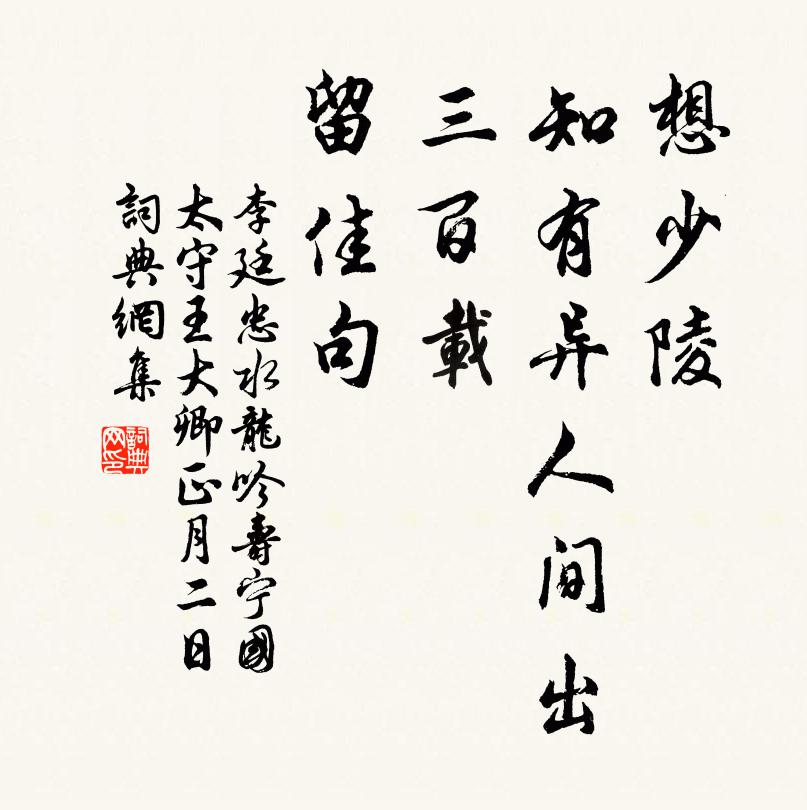 想少陵
知有异人间出
三百載
留佳句
李廷忠水龍吟壽宁國
太守王大卿正月二日
詞典網集
詞典网印